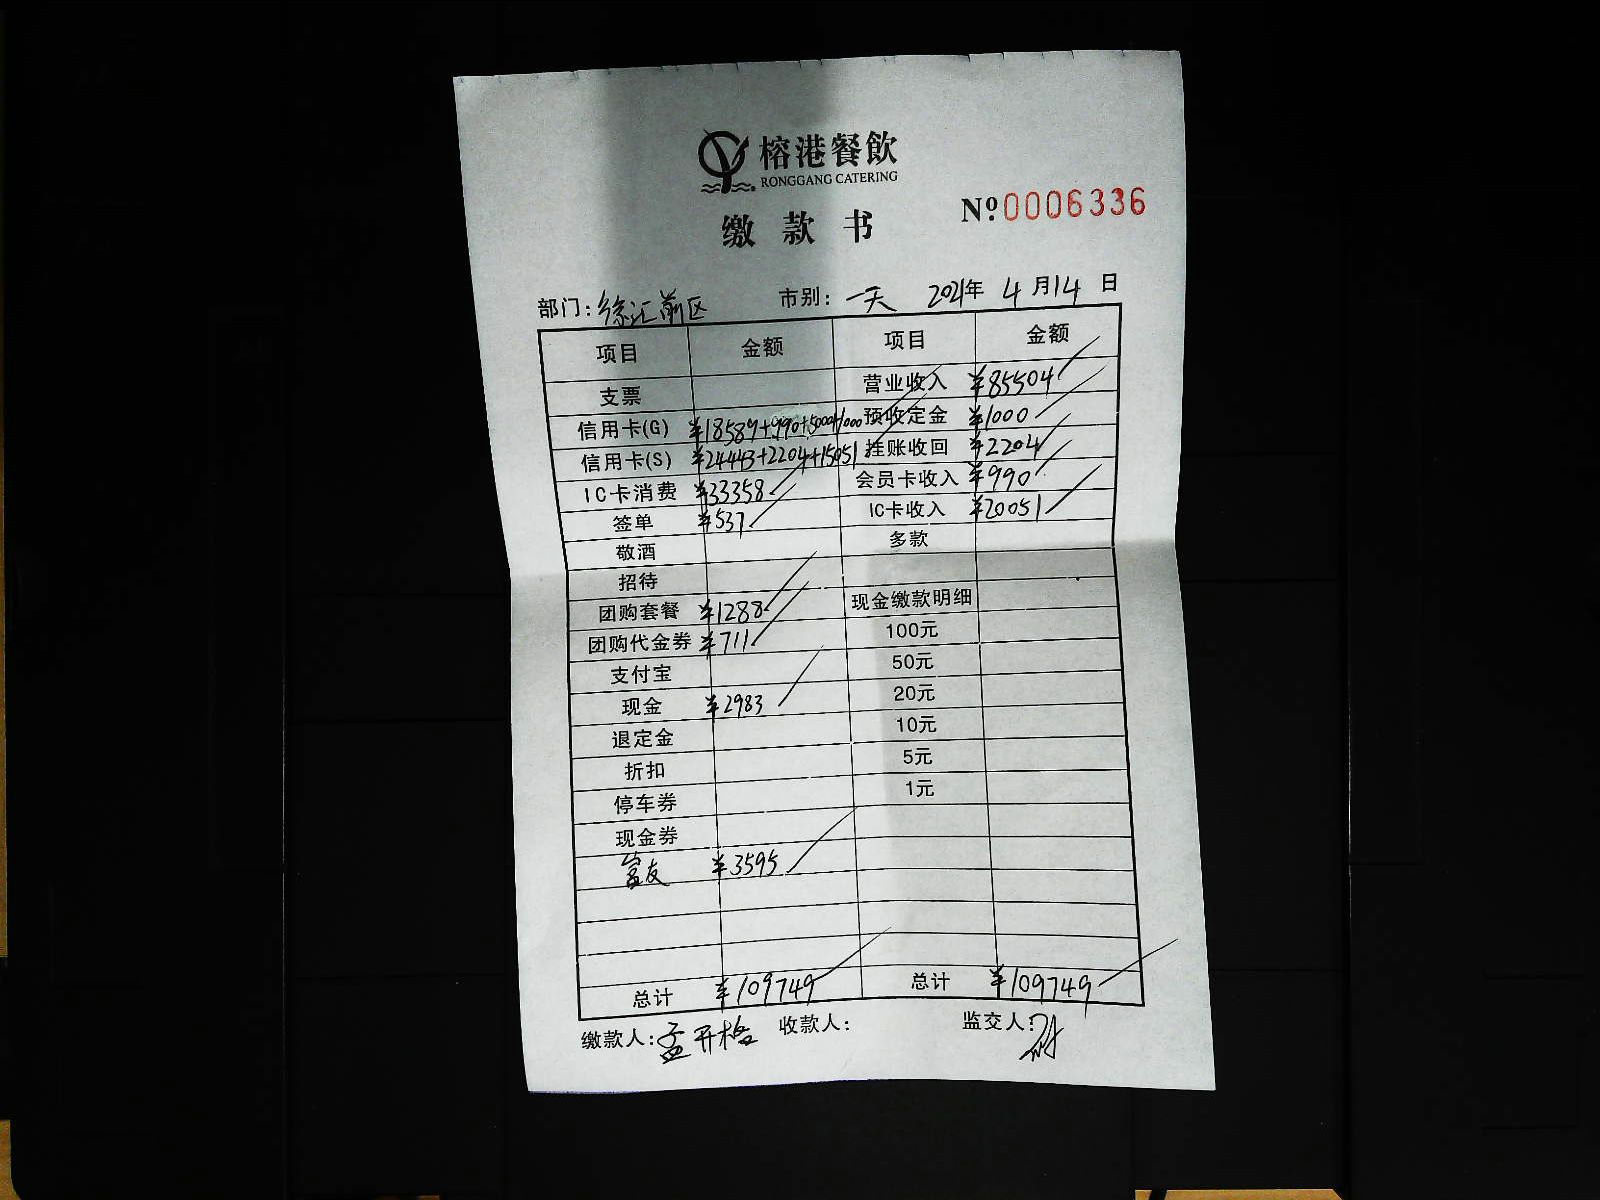 榕港餐飲
RONGGANG CATERING
缴款书
Nº 0006336
部门: 徐汇前区 市别: 一天 2021年 4月14日
项目 金额 项目 金额
支票 营业收入 ¥85504
信用卡(G) ¥18589+990+5000+1000 预收定金 ¥1000
信用卡(S) ¥24443+2204+15051 挂账收回 ¥2204
IC卡消费 ¥33358 会员卡收入 ¥990
签单 ¥537 IC卡收入 ¥20051
敬酒 多款
招待
团购套餐 ¥1288 现金缴款明细
团购代金券 ¥711 100元
支付宝 50元
现金 ¥2983 20元
退定金 10元
折扣 5元
停车券 1元
现金券
富友 ¥3595
总计 ¥109749 总计 ¥109749
缴款人: 孟开格 收款人: 监交人: